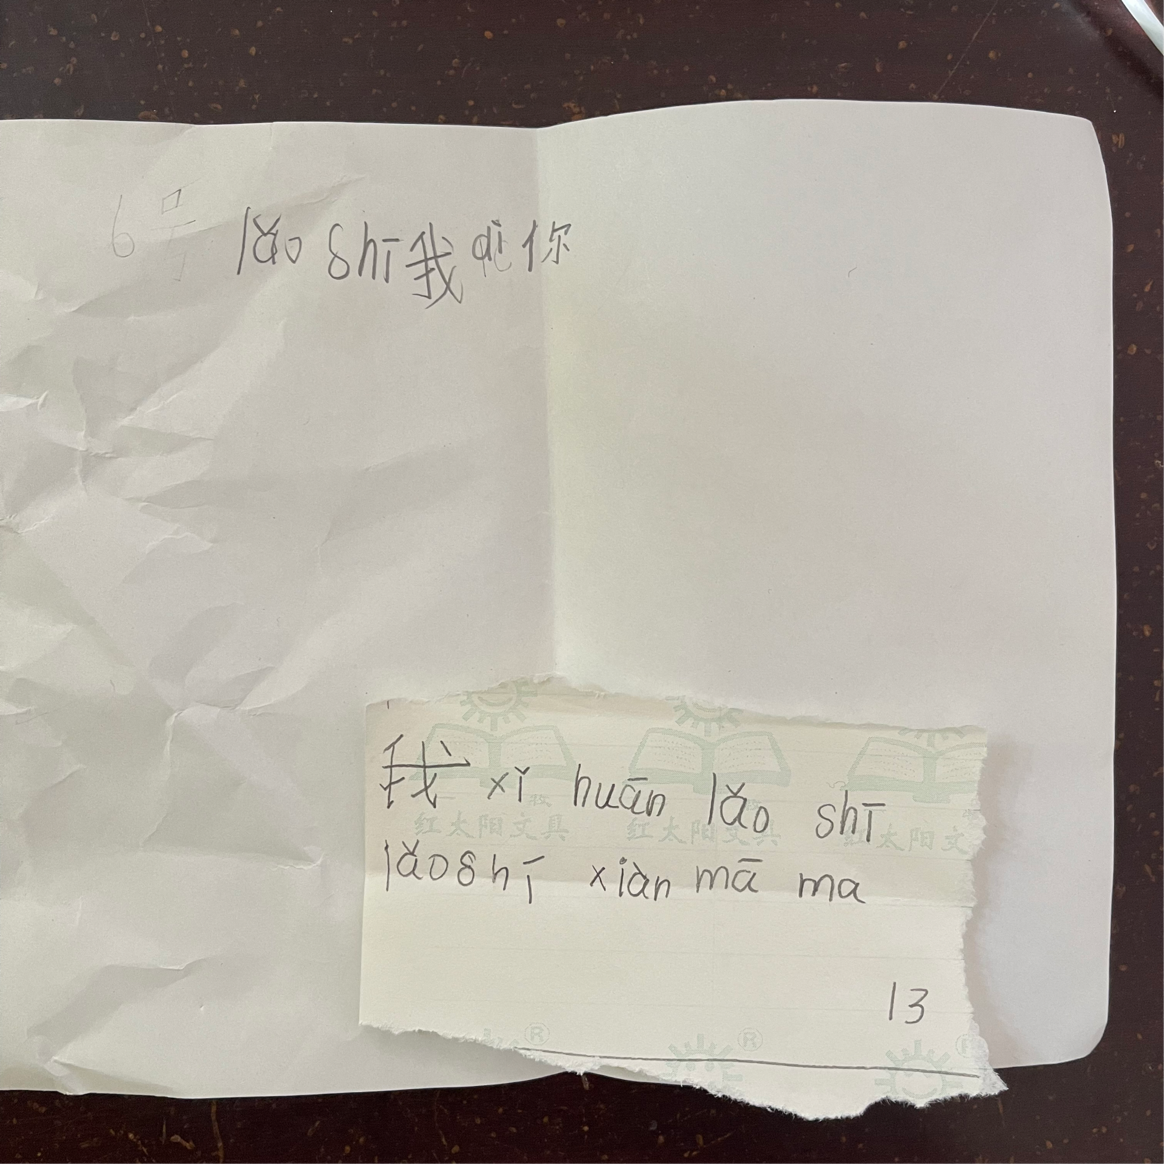 6号 lǎo shī我ài你
我 xǐ huān lǎo shī
lǎoshī xiàn mā ma
13
红太阳文具 红太阳文具 红太阳文